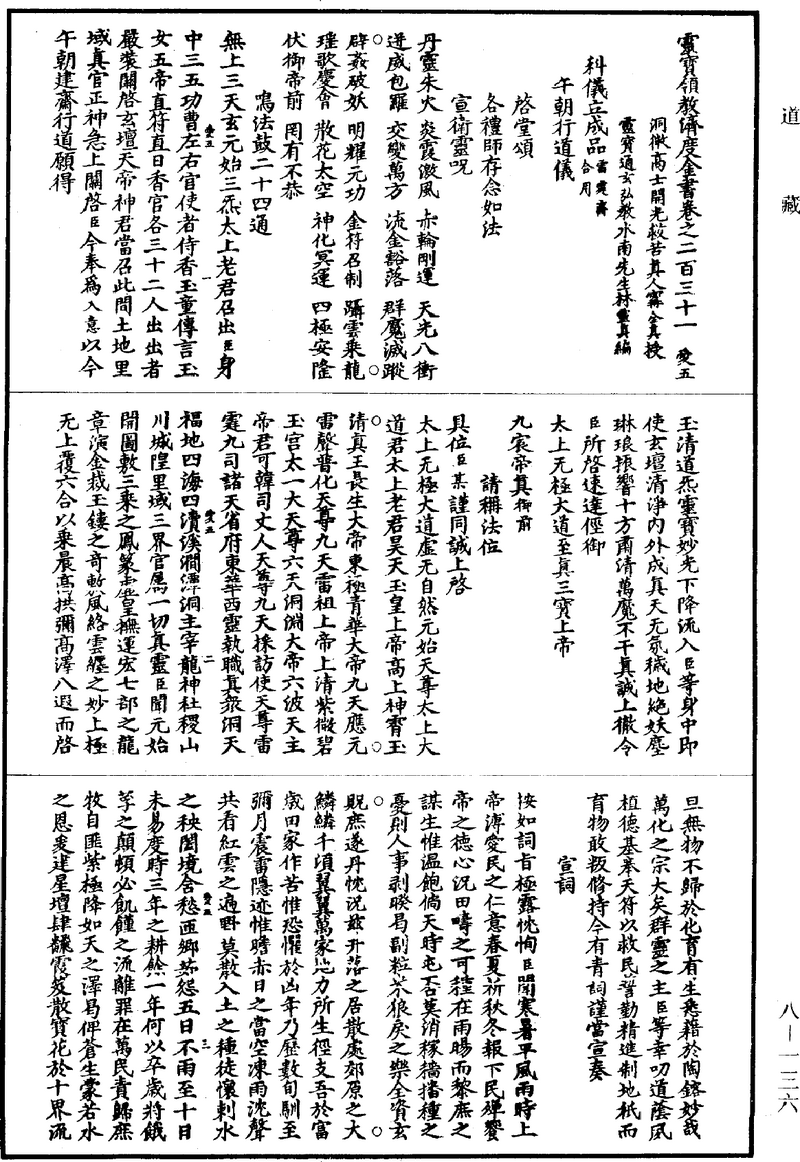 道藏
靈寶領教濟度金書卷之二百三十一　愛五
洞微高士開光救苦真人甯全真授
靈寶通玄弘教水南先生林靈真編
科儀立成品雷霆齋合用
午朝行道儀
啓堂頌
各禮師存念如法
宣衛靈呪
丹靈朱火　炎霞激風　赤輪剛運　天光八衝
迸威包羅　交變萬方　流金豁落　群魔滅蹤
辟姦破妖　明耀元功　金符召制　躡雲乘龍
瑤歌慶會　散花太空　神化冥運　四極安隆
伏御帝前　罔有不恭
鳴法鼓二十四通
無上三天玄元始三炁太上老君召出臣身
中三五功曹左右官使者侍香玉童傳言玉
女五帝直符直日香官各三十二人出出者
嚴裝關啓玄壇天帝神君當召此間土地里
域真官正神急上關啓臣今奉爲入意以今
午朝建齋行道願得
玉清道炁靈寶妙光下降流入臣等身中即
使玄壇清淨內外成真天无氛穢地絕妖塵
琳琅振響十方肅清萬魔不干真誠上徹令
臣所啓速達徑御
太上元極大道至真三寶上帝
九宸帝真御前
請稱法位
具位臣某謹同誠上啓
太上无極大道虛无自然元始天尊太上大
道君太上老君昊天玉皇上帝高上神霄玉
清真王長生大帝東極青華大帝九天應元
雷聲普化天尊九天雷祖上帝上清紫微碧
玉宮太一大天尊六天洞淵大帝六波天主
帝君可韓司丈人天尊九天採訪使天尊雷
霆九司諸天省府東華西靈執職真衆洞天
福地四海四瀆溪澗潭洞主宰龍神社稷山
川城隍里域三界官屬一切真靈臣聞元始
開圖敷三乘之鳳篆虛皇撫運宏七部之龍
章演金挍玉鏤之奇敷風絡雲纏之妙上極
无上覆六合以乘晨高拱彌高澤八遐而啓
旦無物不歸於化育有生悉藉於陶鎔妙哉
萬化之宗大矣群靈之主臣等幸叨道蔭夙
植德基奉天符以救民誓勤精進制地祇而
育物敢叛修持今有青詞謹當宣奏
宣詞
按如詞旨極露忱恂臣聞寒暑平風雨時上
帝溥愛民之仁意春夏祈秋冬報下民殫饗
帝之德心況田疇之可穡在雨暘而黎庶之
謀生惟溫飽倘天時屯否莫消稼穡播種之
憂則人事剝暌曷副粒芥狼戾之樂全資玄
貺庶遂丹忱況茲升落之居散處郊原之大
鱗鱗千頃翼翼萬家地力所生徑支吾於富
歲田家作苦惟恐懼於凶年乃歷數旬馴至
彌月震雷隱迹惟瞻赤日之當空凍雨沈聲
共看紅雲之遍野莫散入土之種徒懷剌水
之秧闔境含愁匝鄉茹怨五日不雨至十日
未易度時三年之耕餘一年何以卒歲將餓
莩之顛頓必飢饉之流離罪在萬民責歸庶
牧自匪紫極降如天之澤曷俾蒼生蒙若水
之恩爰建星壇肆馳霞笈散寶花於十界流
愛五
一
愛五
二
愛五
三
八—一三六